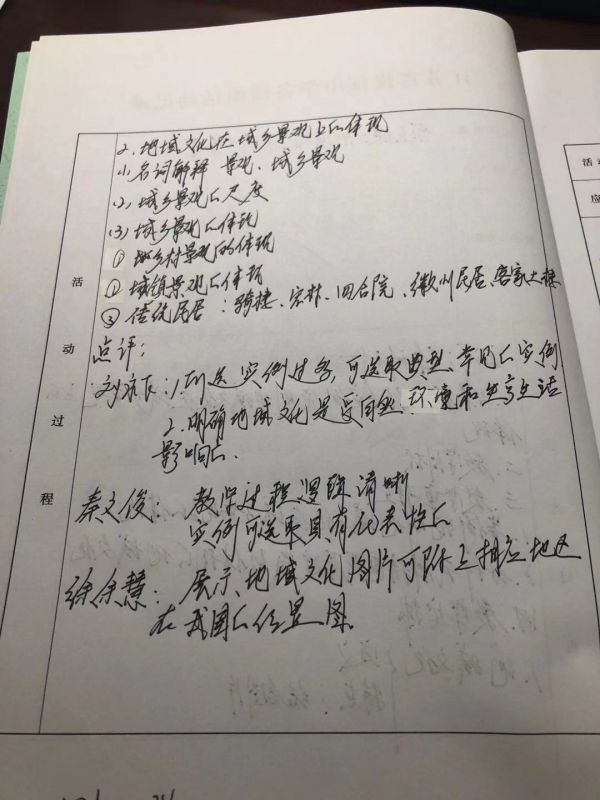 2、地域文化在城乡景观上的体现
(1)名词解释 景观、城乡景观
(2)、城乡景观的尺度
(3)城乡景观的体现
①乡村景观的体现
②城镇景观的体现
③传统民居：骑楼、四合院、徽州民居、客家土楼
点评：
1、所选实例过多，可选取典型、常见的实例
2、明确地域文化是受自然环境和生产生活
影响的。
秦文俊：教学过程逻辑清晰
实例可选取具有代表性的
徐余慧：展示地域文化图片可附上相应地区
在我国的位置图
活动过程
活
应